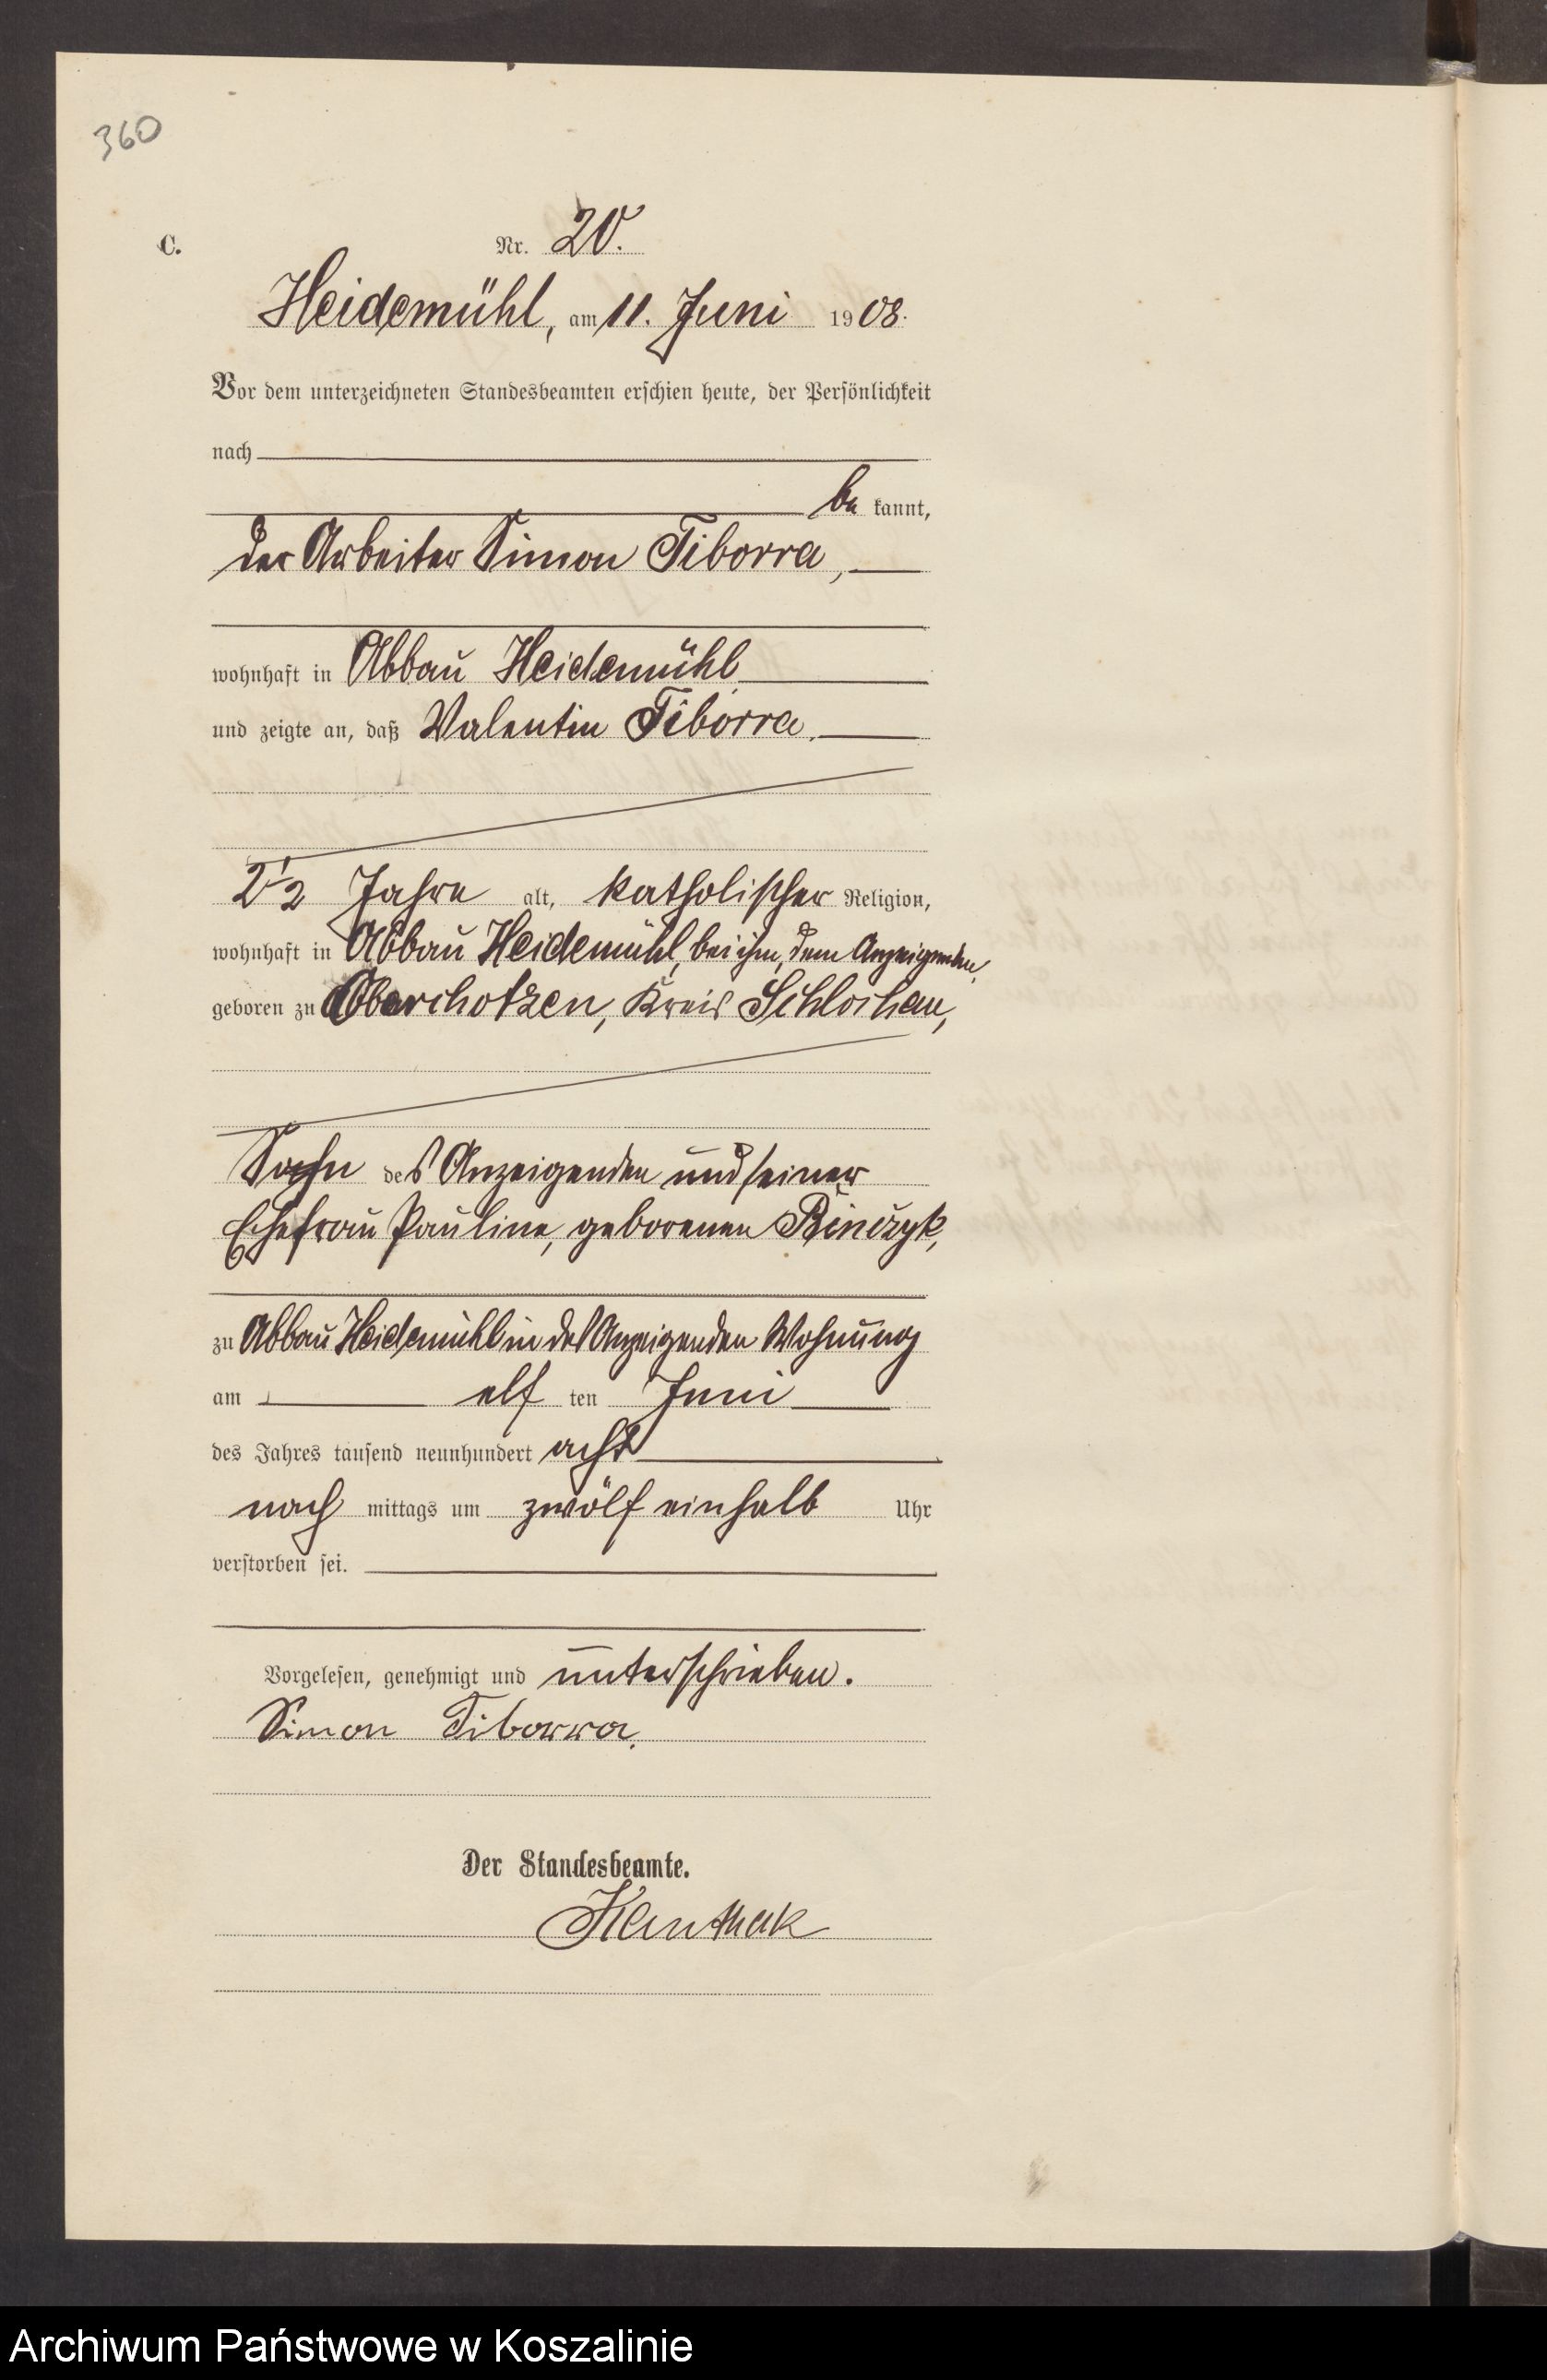 360
C.
Nr. 20.
Heidemühl, am 11. Juni 1908.
Vor dem unterzeichneten Standesbeamten erschien heute, der Persönlichkeit
nach
be kannt,
der Arbeiter Simon Tiborra,
wohnhaft in Abbau Heidemühl
und zeigte an, daß Valentin Tiborra,
2 1/2 Jahre alt, katholischer Religion,
wohnhaft in Abbau Heidemühl, bei ihm, dem Anzeigenden,
geboren zu Oberchotzen, Kreis Schlochau,
Sohn des Anzeigenden und seiner
Ehefrau Pauline, geborenen Binczyk,
zu Abbau Heidemühl in des Anzeigenden Wohnung
am elf ten Juni
des Jahres tausend neunhundert acht
nach mittags um zwölf einhalb Uhr
verstorben sei.
Vorgelesen, genehmigt und unterschrieben.
Simon Tiborra.
Der Standesbeamte.
Archiwum Państwowe w Koszalinie